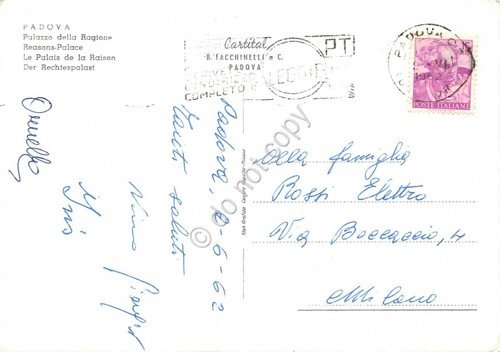 PADOVA
Palazzo della Ragione
Reasons-Palace
Le Palais de la Raison
Der Rechtespalast
Cartital
B. FACCHINELLI e C.
PADOVA
PT
COMPLETO E
PADOVA
POSTE ITALIANE
Padova, 2-6-62
Tanti saluti
Ornella
Iris
Alla famiglia
Rossi Elettro
Via Boccaccio, 4
Milano
do not copy